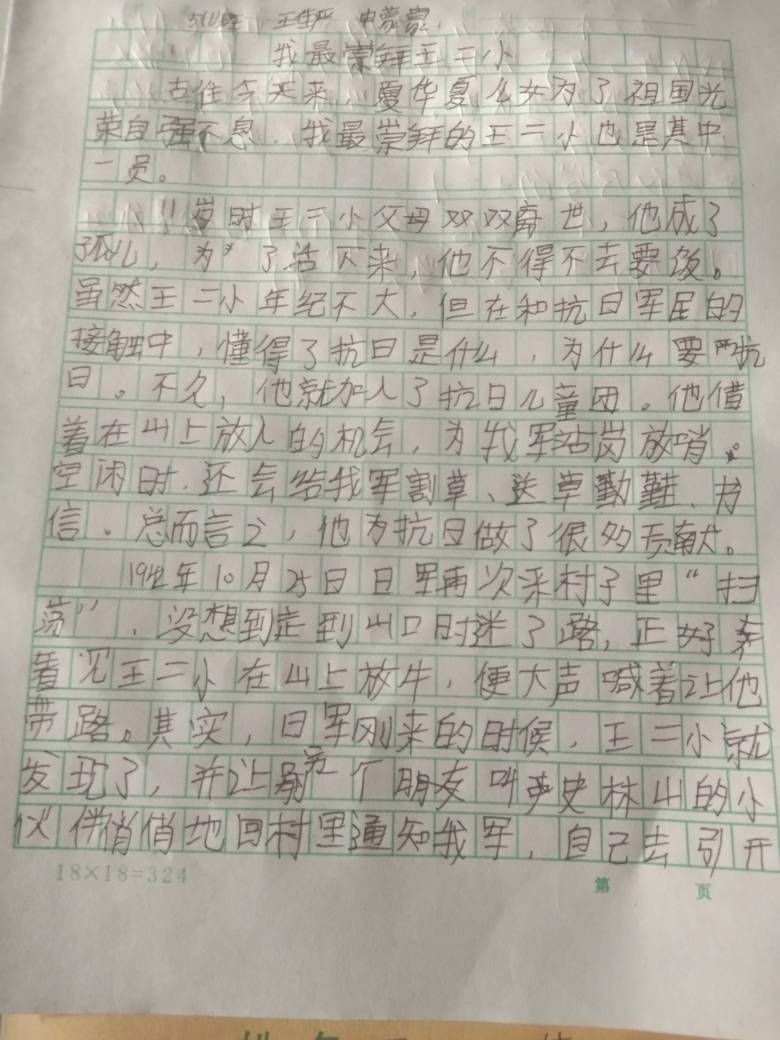 我最崇拜王二小
古往今天来，夏华夏儿女为了祖国光
荣自强不息，我最崇拜的王二小也是其中
一员。
11岁时王二小父母双双离世，他成了
孤儿，为了活下来，他不得不去要饭。
虽然王二小年纪不大，但在和抗日军民的
接触中，懂得了抗日是什么，为什么要抗
日。不久，他就加入了抗日儿童团。他借
着在山上放人的机会，为我军站岗放哨。
空闲时.还会给我军割草、送草勤鞋、
信。总而言之，他为抗日做了很多贡献。
1942年10月25日日军再次来村子里“扫
荡”，没想到走到山口时迷了路，正好
看见王二小在山上放牛，便大声喊着让他
带路。其实，日军刚来的时候，王二小就
发现了，并让另一个朋友叫史林山的小
伙伴悄悄地回村里通知我军，自己去引开
18×18=324
第 页